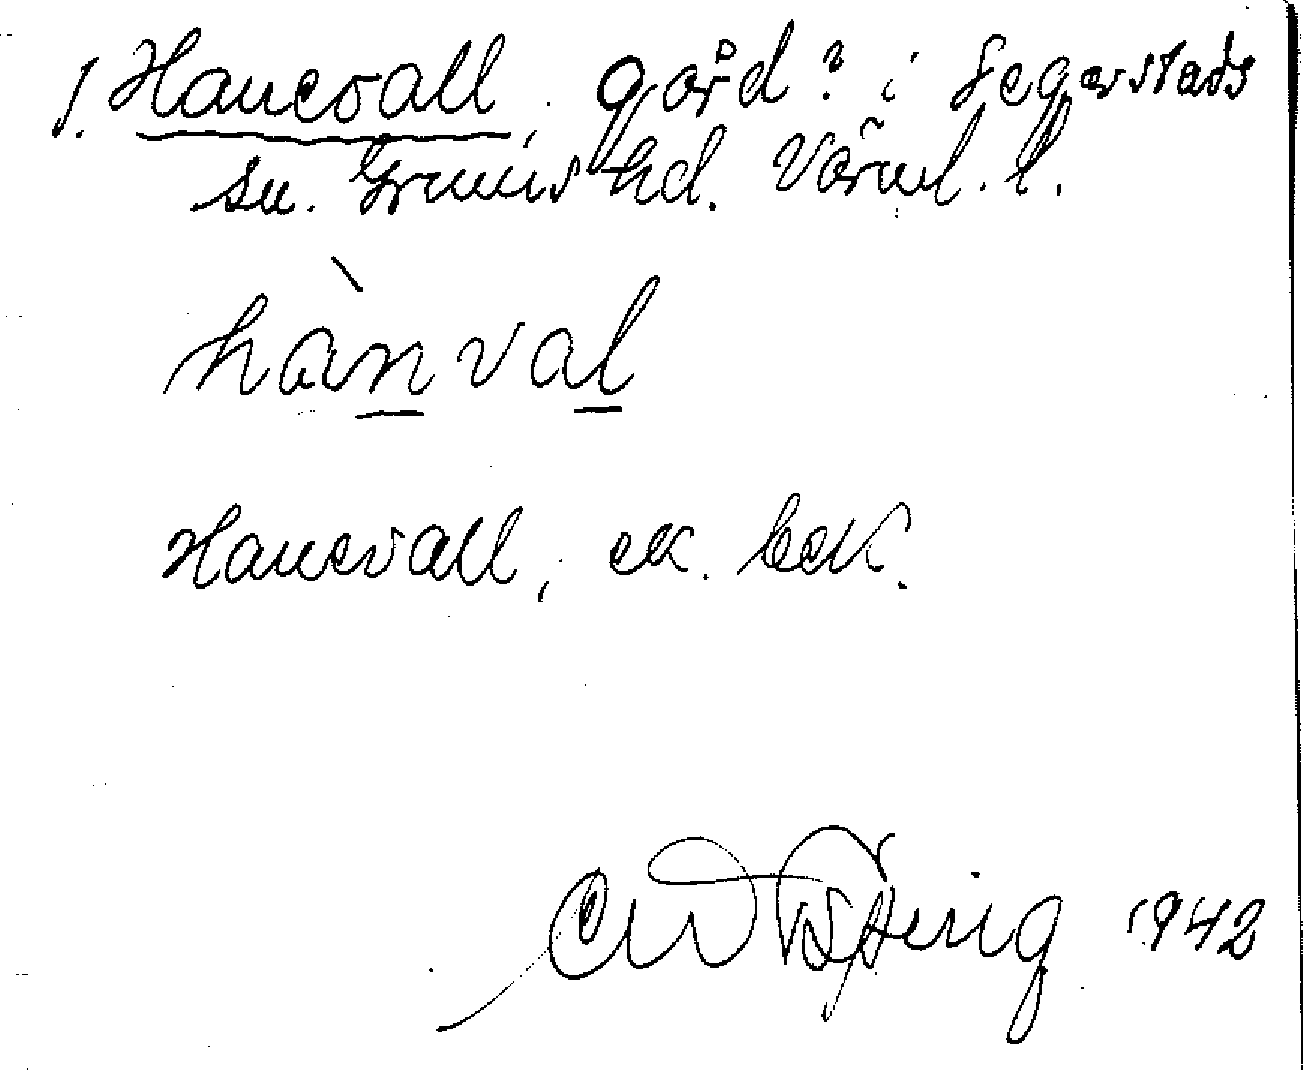 1. Hanevall, gård? i Segerstads
sn. Grums hd. Värml. l.
hànval
Hanevall, ek. bek.
1942